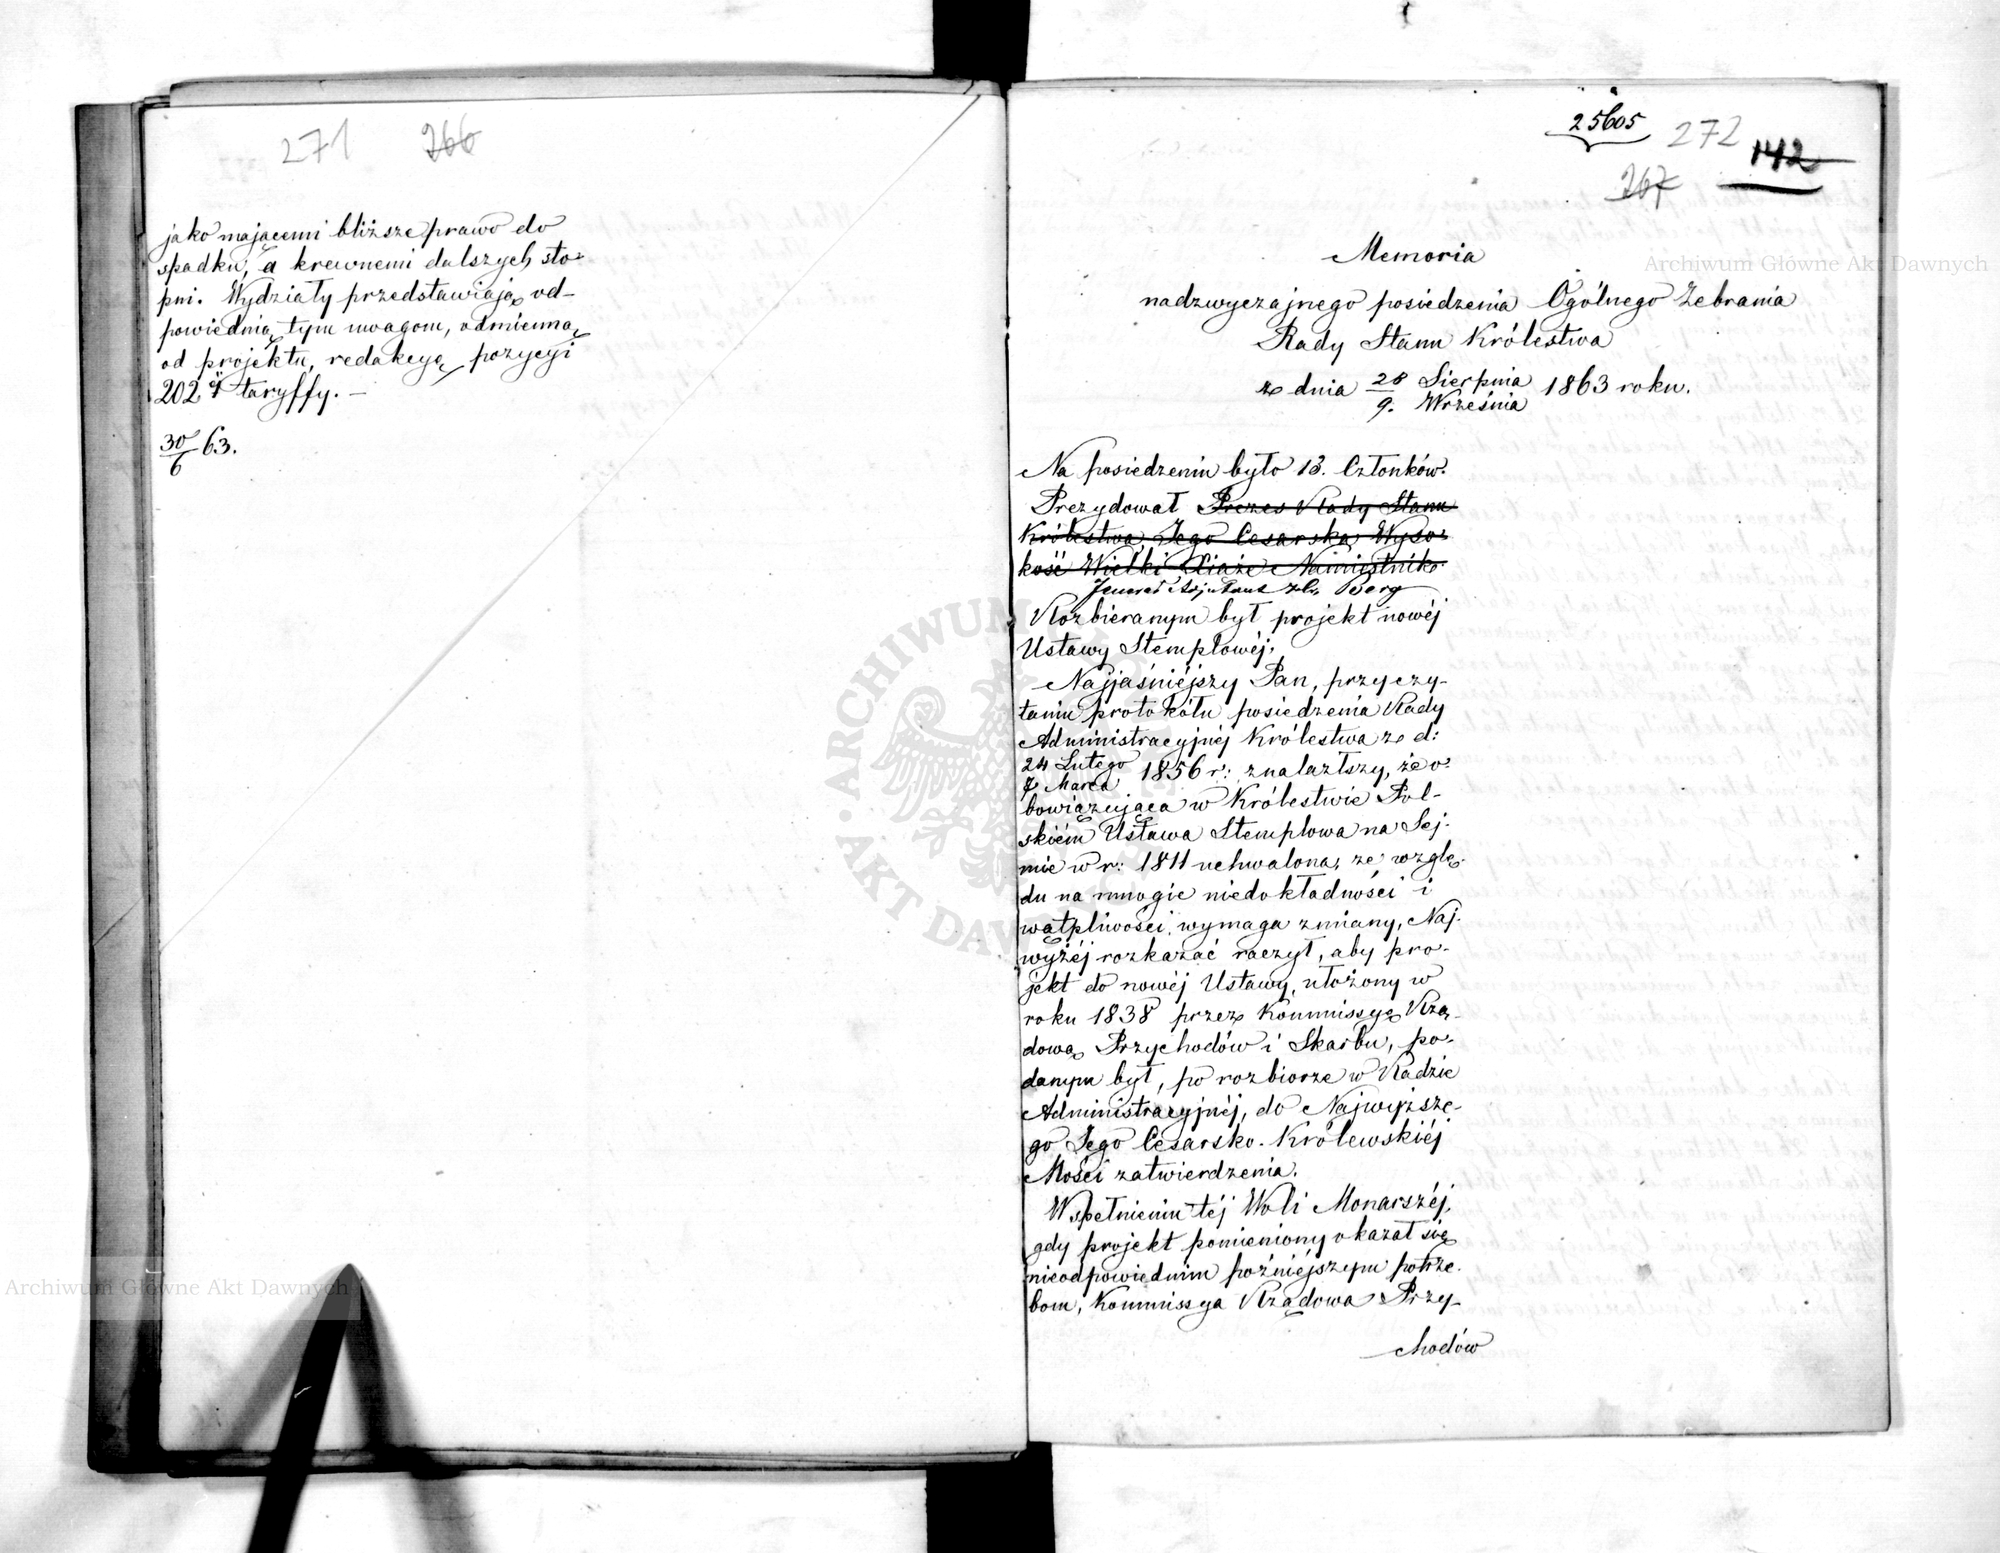 271 266
jako mającemi bliższe prawo do
spadku, a krewnemi dalszych sto-
pni. Wydziały przedstawiają od-
powiednią tym uwagom, odmienną
od projektu, redakcyę pozycyi
202éj taryffy. —
30/6 63.
25605 272 142
267
Memoria
nadzwyczajnego posiedzenia Ogólnego Zebrania
Rady Stanu Królestwa
z dnia 28 Sierpnia / 9. Września 1863 roku.
Na posiedzeniu było 13. Członków.
Prezydował Prezes Rady Stanu
Królestwa, Jego Cesarska Wyso-
kość Wielki Xiąże Namiestnik.
Jenerał Adjutant Hr. Berg
Rozbieranym był projekt nowéj
Ustawy Stemplowéj.
Najjaśniéjszy Pan, przy czy-
taniu protokółu posiedzenia Rady
Administracyjnéj Królestwa z d:
24 Lutego / 7 Marca 1856 r: znalazłszy, że o-
bowiązująca w Królestwie Pol-
skiém Ustawa Stemplowa na Sej-
mie w r: 1811 uchwalona, ze wzglę-
du na mnogie niedokładności i
wątpliwości, wymaga zmiany, Naj-
wyżéj rozkazać raczył, aby pro-
jekt do nowéj Ustawy, ułożony w
roku 1838 przez Kommissyę Rzą-
dową Przychodów i Skarbu, po-
danym był, po rozbiorze w Radzie
Administracyjnéj, do Najwyższe-
go Jego Cesarsko-Królewskiéj
Mości zatwierdzenia.
W spełnieniu téj Woli Monarszéj,
gdy projekt pomieniony okazał się
nieodpowiednim poźniéjszym potrze-
bom, Kommissya Rządowa Przy-
chodów
Archiwum Główne Akt Dawnych
Archiwum Główne Akt Dawnych
ARCHIWUM GŁÓWNE AKT DAWNYCH